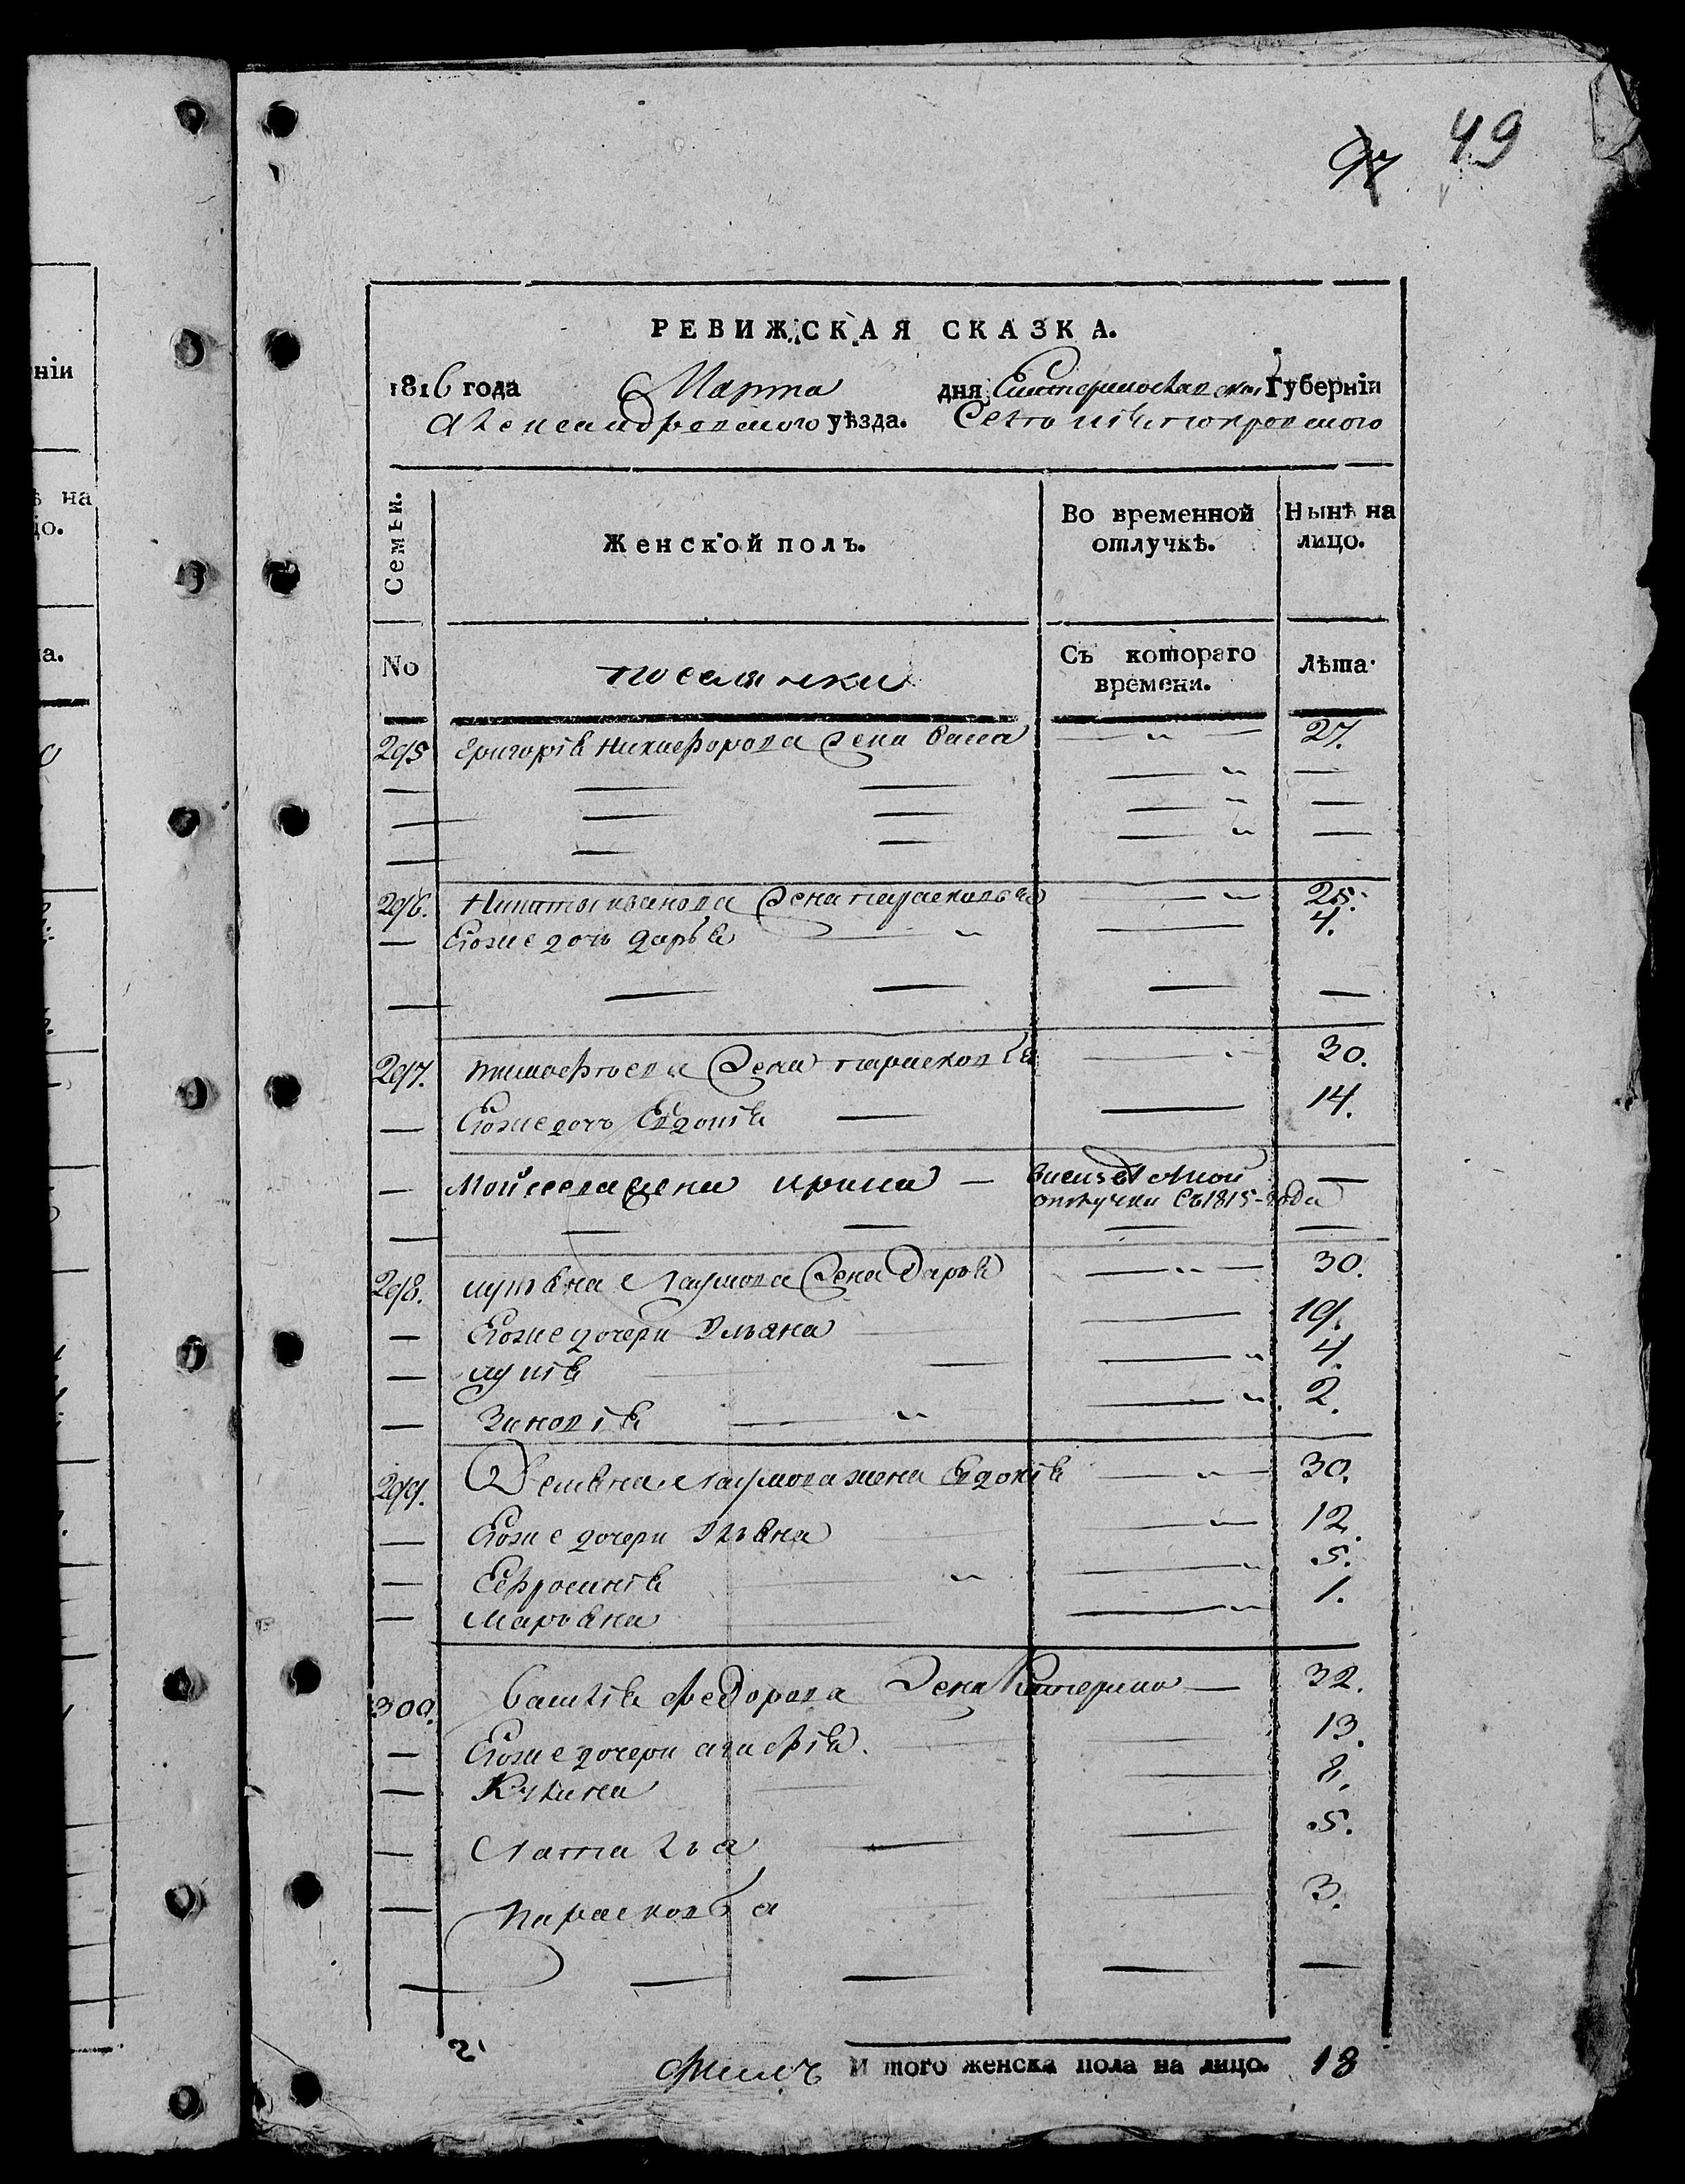 49
97
РЕВИЖСКАЯ СКАЗКА.
1816 года Марта дня Екатеринославской Губерніи
Александровского уѣзда. Село новопокровского
ніи
ѣ на
цо.
Семьи.
Женской полъ.
Во временной отлучкѣ.
Нынѣ на лицо.
No
поселянки
Съ котораго времени.
Лѣта.
295 Григорія Никифорова жена Васса — „ — 27.
296. Никиты иванова жена парасковья — „ 25.
— Егоже дочь дарья — „ — 4.
297. тимофѣева жена парасковія — 30.
— Егоже дочь Евдокія — — 14.
— Мойсеева жена ирина — —
отлучки съ 1815-года
298. лукьяна Наумова жена Дарья — „ — 30.
— Егоже дочери Ульяна — 19.
— — — „ 4.
— Зиновія — „ — „ 2.
299. Демьяна Наумова жена Евдокія — „ — 30.
— Егоже дочери Ульяна — „ 12.
— Ефросинія „ — „ 5.
— Марьяна — „ 1.
300. Василія Федорова жена Катерина — 32.
— Егоже дочери агафія. — 13.
— Кулина — 8.
— Наталья — — 5.
— Парасковья — 3.
И того женска пола на лицо. 18